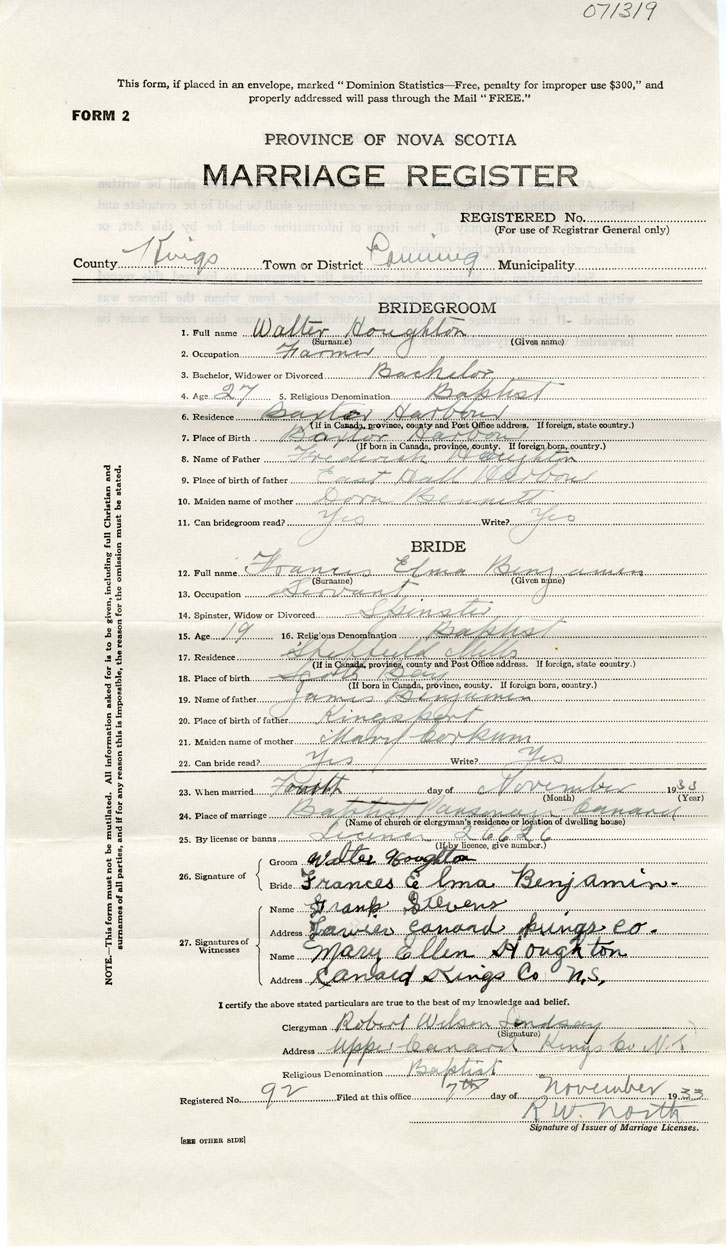 071319
This form, if placed in an envelope, marked "Dominion Statistics—Free, penalty for improper use $300," and
properly addressed will pass through the Mail "FREE."
FORM 2
PROVINCE OF NOVA SCOTIA
MARRIAGE REGISTER
REGISTERED No.
(For use of Registrar General only)
County Kings Town or District Canning Municipality
BRIDEGROOM
1. Full name Walter Houghton
(Surname) (Given name)
2. Occupation Farmer
3. Bachelor, Widower or Divorced Bachelor
4. Age 27 5. Religious Denomination Baptist
6. Residence Baxter Harbour
(If in Canada, province, county and Post Office address. If foreign, state country.)
7. Place of Birth Baxter Harbour
(If born in Canada, province, county. If foreign born, country.)
8. Name of Father Frederick Houghton
9. Place of birth of father East Hall Harbour
10. Maiden name of mother Dora Bennett
11. Can bridegroom read? Yes Write? Yes
BRIDE
12. Full name Frances Elma Benjamin
(Surname) (Given name)
13. Occupation Servant
14. Spinster, Widow or Divorced Spinster
15. Age 19 16. Religious Denomination Baptist
17. Residence Sheffield Mills
(If in Canada, province, county and Post Office address. If foreign, state country.)
18. Place of birth Scots Bay
(If born in Canada, province, county. If foreign born, country.)
19. Name of father James Benjamin
20. Place of birth of father Kingsport
21. Maiden name of mother Mary Corkum
22. Can bride read? Yes Write? Yes
23. When married Fourth day of November 1933
(Month) (Year)
24. Place of marriage Baptist Parsonage Canard
(Name of church or clergyman's residence or location of dwelling house)
25. By license or banns License 26626
(If by licence, give number.)
26. Signature of
Groom Walter Houghton
Bride Frances Elma Benjamin.
27. Signatures of Witnesses
Name Frank Stevens
Address Canard Kings Co.
Name Mary Ellen Houghton
Address Canard Kings Co N.S.
I certify the above stated particulars are true to the best of my knowledge and belief.
Clergyman Robert Wilson Lindsay
(Signature)
Address Upper Canard Kings Co N.S.
Religious Denomination Baptist
Registered No. 92 Filed at this office 7th day of November 1933
R.W. North
Signature of Issuer of Marriage Licenses.
[SEE OTHER SIDE]
NOTE.—This form must not be mutilated. All information asked for is to be given, including full Christian and
surnames of all parties, and if for any reason this is impossible, the reason for the omission must be stated.